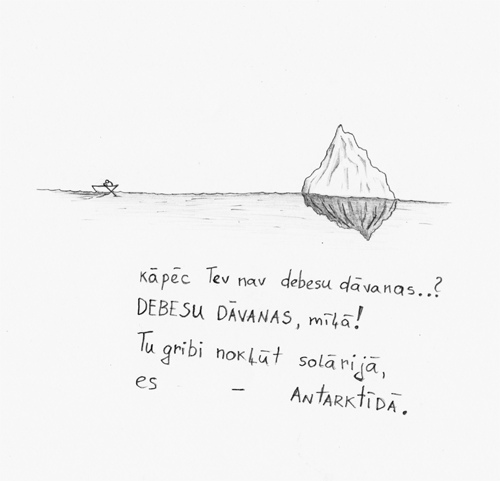 kāpēc Tev nav debesu dāvanas..?
DEBESU DĀVANAS, mīļā!
Tu gribi nokļūt solārijā,
es – ANTARKTĪDĀ.